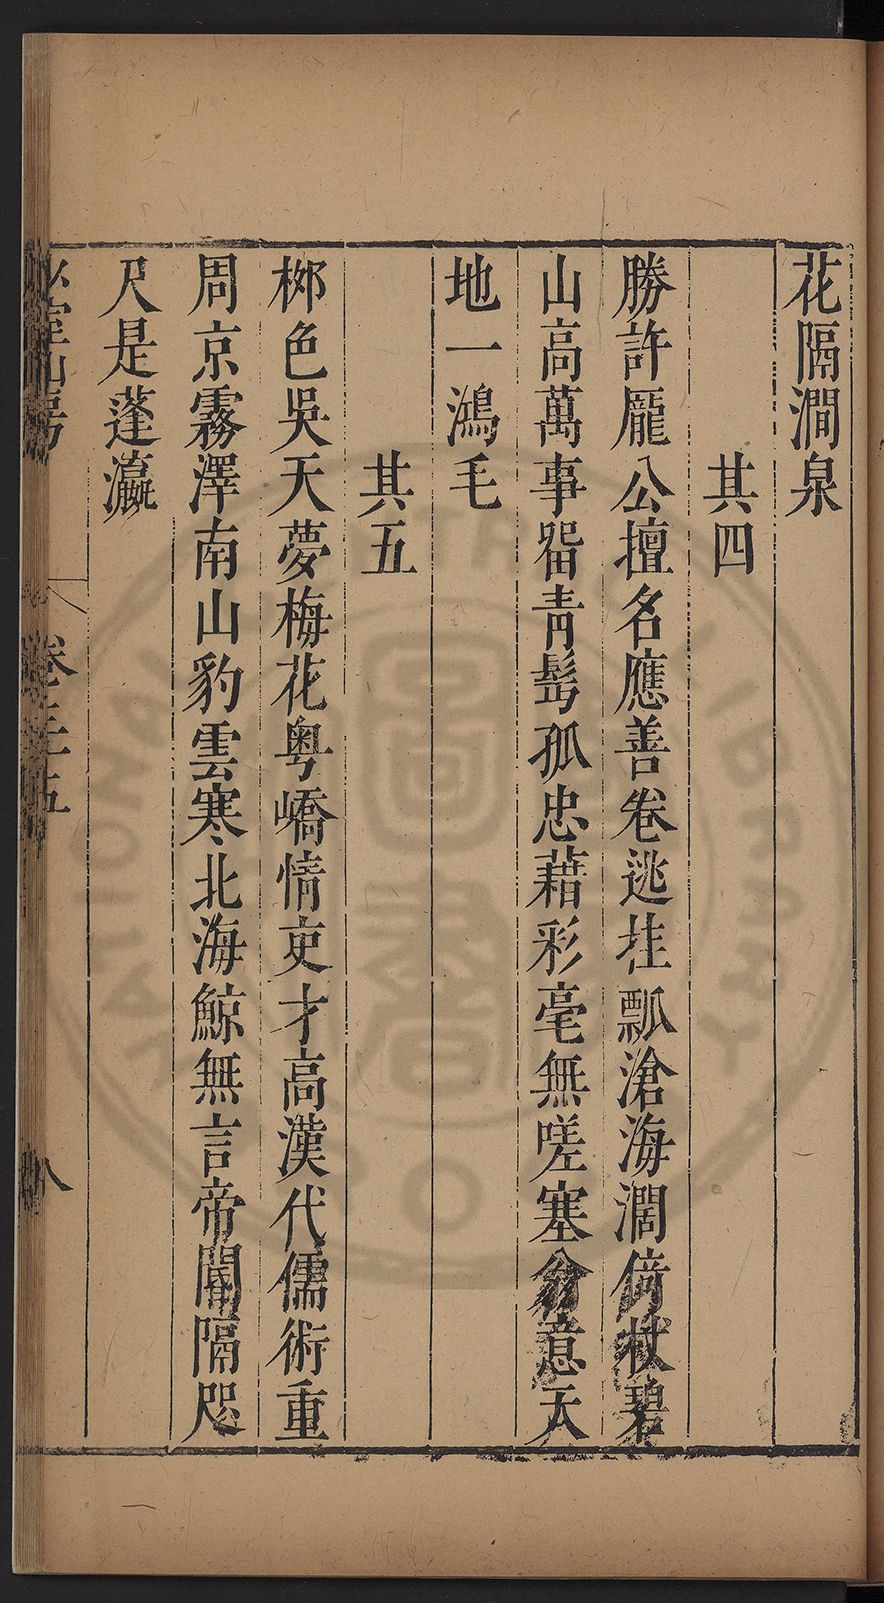 花隔澗泉
其四
勝許龎公擅名應善卷逃挂瓢滄海濶倚杖碧
山高萬事畱青髩孤忠藉彩毫無嗟塞翁意天
地一鴻毛
其五
柳色吳天夢梅花粤嶠情吏才高漢代儒術重
周京霧澤南山豹雲寒北海鯨無言帝閽隔咫
尺是蓬瀛
山房
卷三十五
八